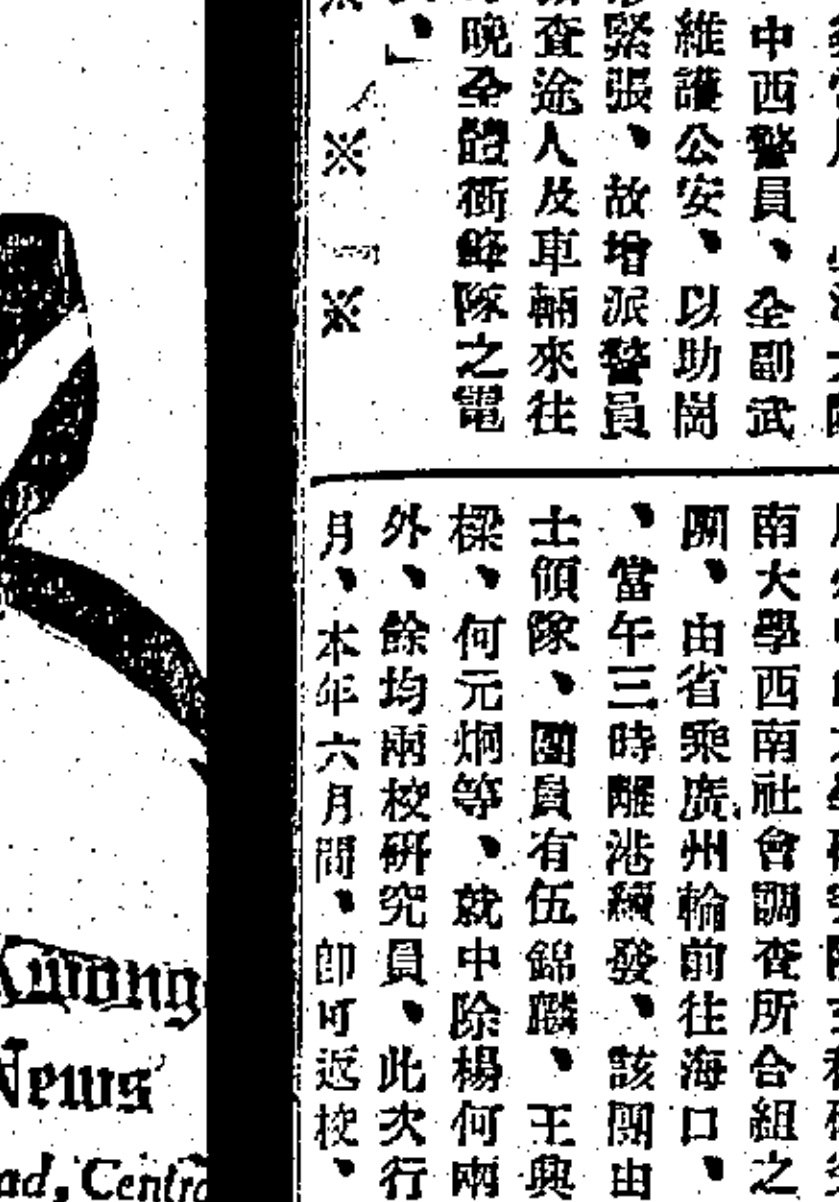 中西警員、全副武
維護公安、以助崗
緊張、故增派警員
查途人及車輛來往
晚全體衝鋒隊之電
、」
※
※
南大學西南社會調查所合組之
團、由省乘廣州輪前往海口、
、當午三時離港續發、該團由
士領隊、團員有伍錦麟、王興
樑、何元炯等、就中除楊何兩
外、餘均兩校研究員、此次行
月、本年六月間、卽可返校、
News
Centr